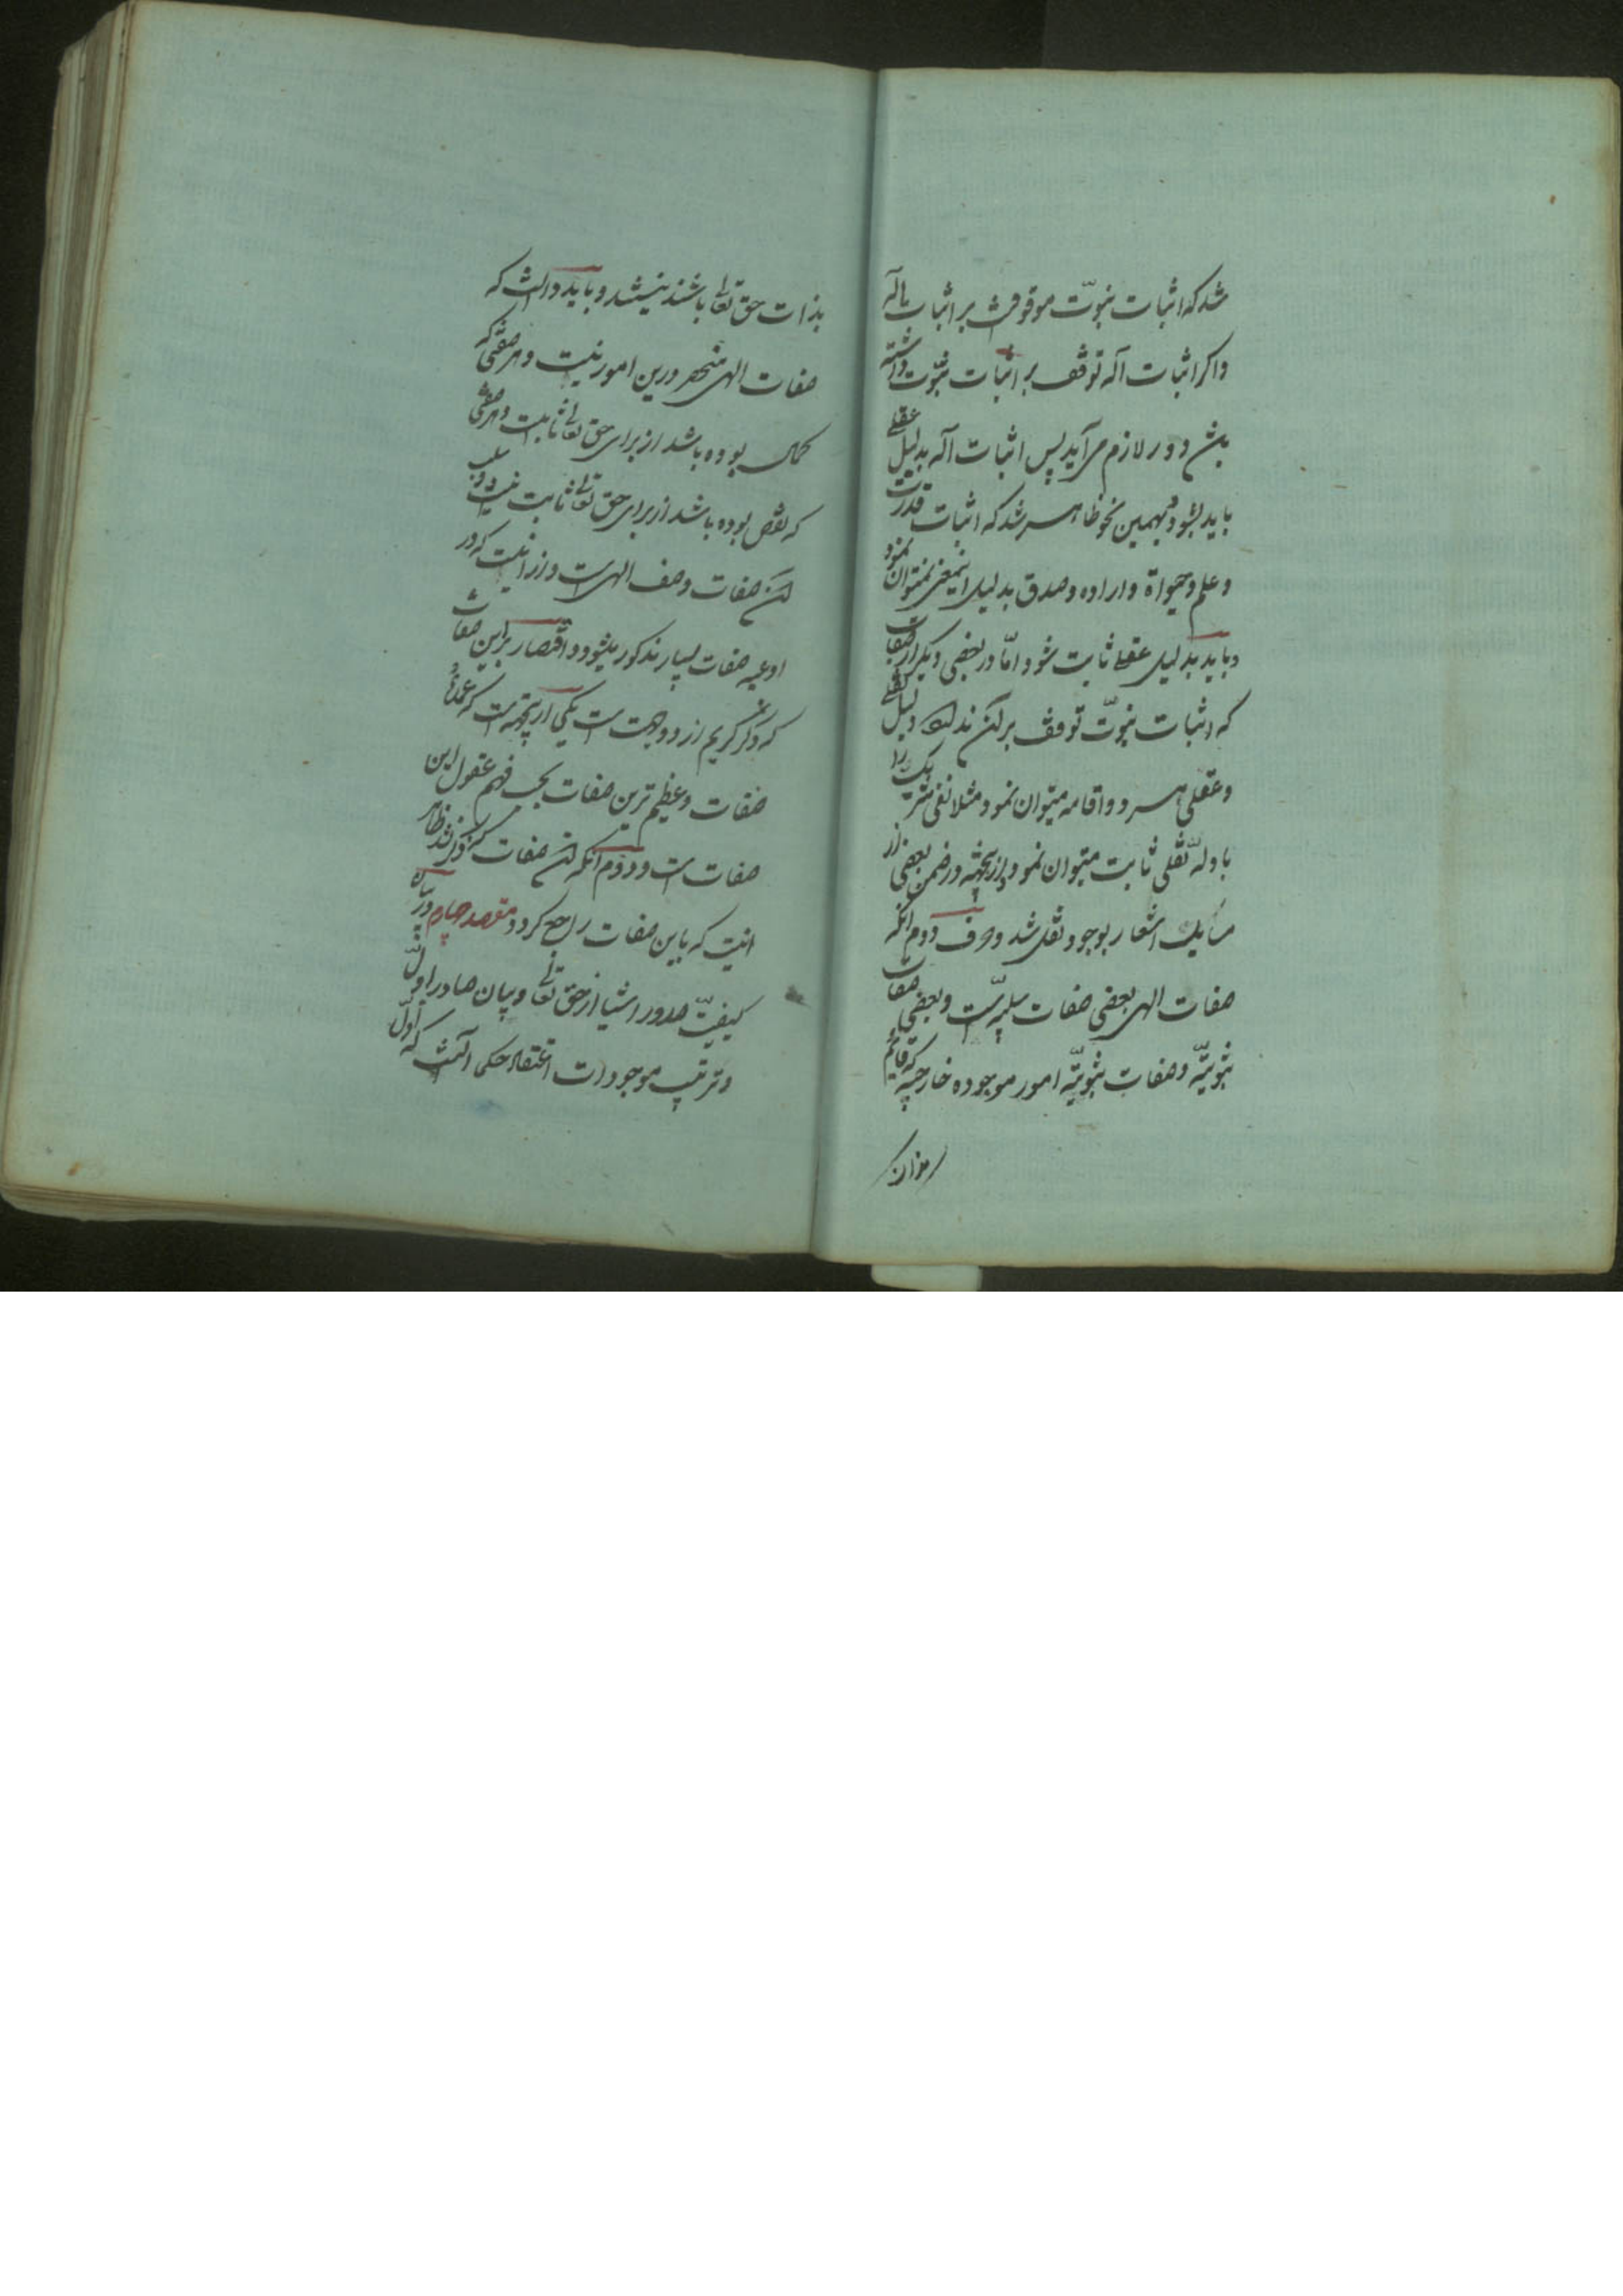 شد که اثبات نبوّت موقوفست بر اثبات اله
واکر اثبات اله توقف بر اثبات نبوّت داشته
باشد دور لازم می‌آید پس اثبات اله بدلیل عقلے
باید بشود و بهمین نحو ظاهر شد که اثبات قدرت
و علم و حیواة و اراده و صدق بدلیل نمیتوان نمود
و باید بدلیل عقلے ثابت شود امّا در بعضی دیکر از صفات
که اثبات نبوّت توقف بر آن ندارد دلیل نقلے
و عقلی هر دو اقامه میتوان نمود مثلا نفی شریک را
بادلهٔ نقلی ثابت میتوان نمود و ازینجهة در ضمن بعضی از
اشعار بوجود نقل شد و حرف دوم آنکه
صفات الهی بعضی صفات سلبیّه است و بعضی صفات
ثبوتیّه و صفات ثبوتیّه امور موجوده خارجیّه که قایم
بذات حق تعالی باشند نیستند و باید دانست که
صفات الهی منحصر درین امور نیست و هر صفتی که
کمال بوده باشد از برای حق تعالی ثابت است و هر صفتی
که نقص بوده باشد از برای حق تعالی ثابت نیست و سلب
آن صفات وصف الهی است و ازانیست که در
ادعیه صفات بسیار مذکور میشود و اقتصار بر این صفات
که ذکر کردیم از دو جهت است یکی ازینجهت است که عمدۀ
صفات و عظیم ترین صفات بحسب فهم عقول این
صفات است و دوم آنکه آن صفات
اینست که باین صفات راجع کردد مقصد چهارم در بیان
کیفیّت صدور اشیا از حق تعالی و بیان صادر اوّل
و ترتیب موجودات اعتقاد حکما آنست که اوّل